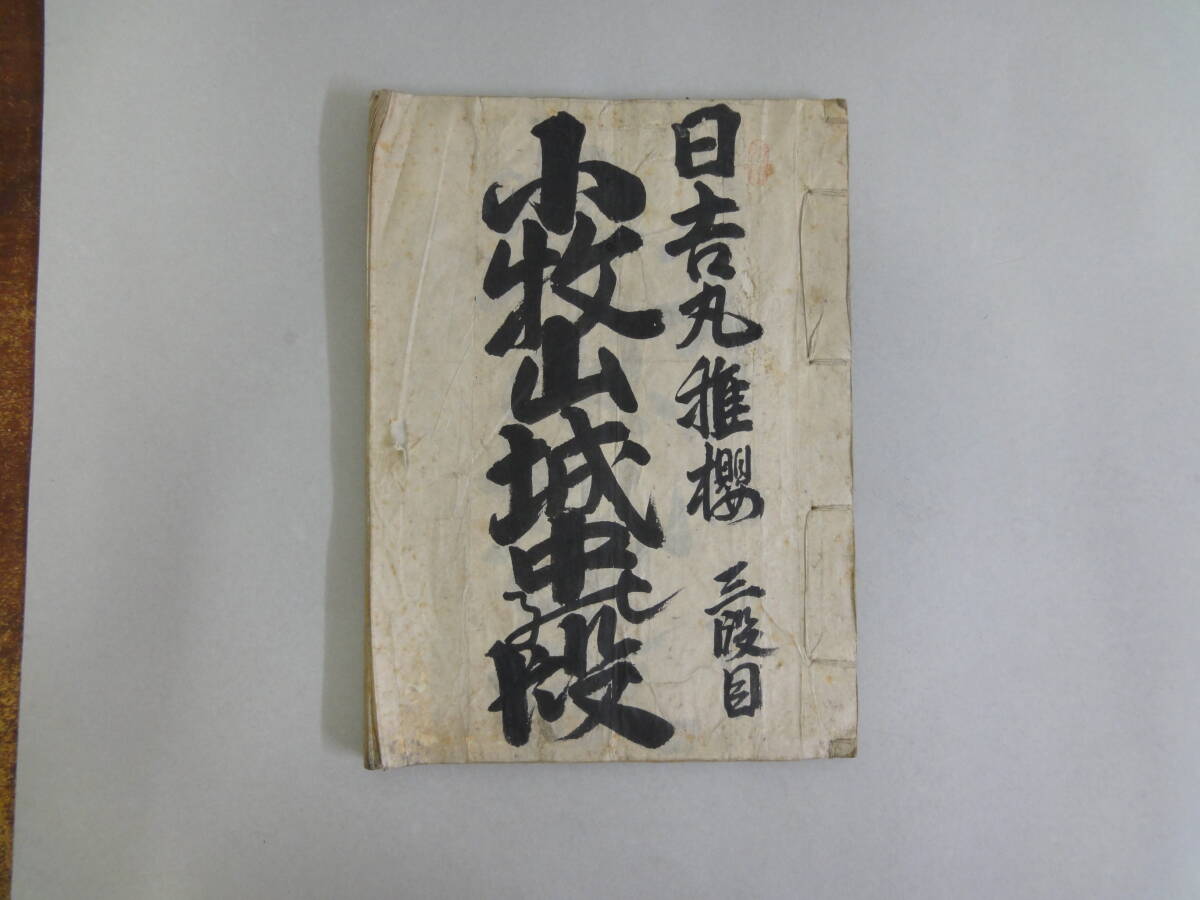 日吉丸稚櫻 三段目
小牧山城中能段